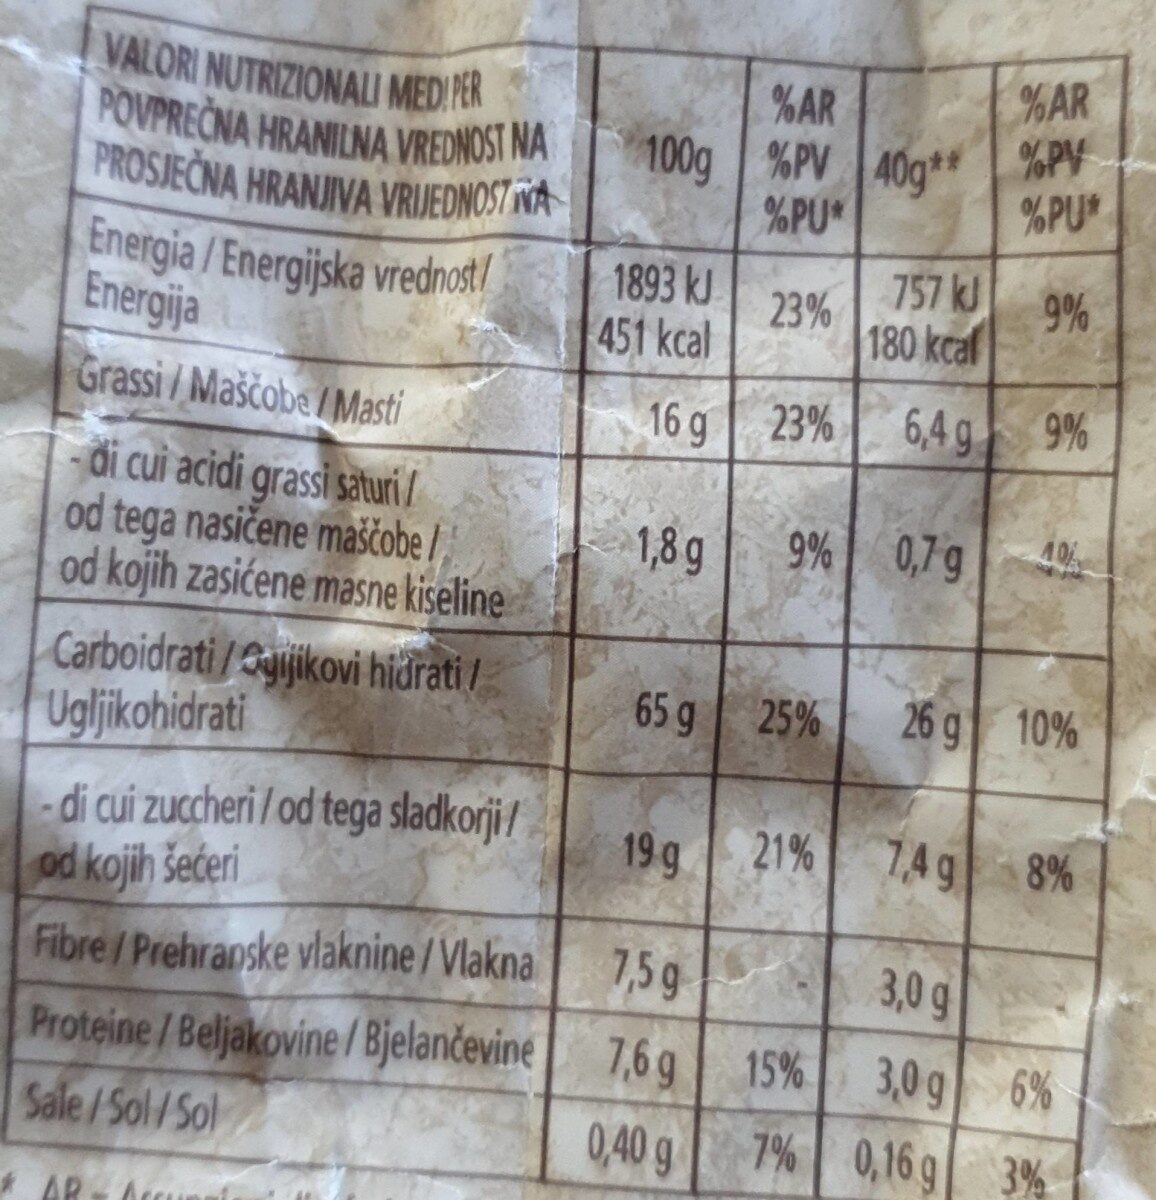 VALORI NUTRIZIONALI MEDI PER
POVPREČNA HRANILNA VREDNOST NA
PROSJEČNA HRANJIVA VRIJEDNOST NA
100g
%AR
%PV
%PU*
40g**
%AR
%PV
%PU*
Energia / Energijska vrednost /
Energija
1893 kJ
451 kcal
23%
757 kJ
180 kcal
9%
Grassi / Maščobe / Masti
16 g
23%
6,4 g
9%
- di cui acidi grassi saturi /
od tega nasičene maščobe /
od kojih zasićene masne kiseline
1,8 g
9%
0,7 g
4%
Carboidrati / Ogljikovi hidrati /
Ugljikohidrati
65 g
25%
26 g
10%
- di cui zuccheri / od tega sladkorji /
od kojih šećeri
19 g
21%
7,4 g
8%
Fibre / Prehranske vlaknine / Vlakna
7,5 g
-
3,0 g
-
Proteine / Beljakovine / Bjelančevine
7,6 g
15%
3,0 g
6%
Sale / Sol / Sol
0,40 g
7%
0,16 g
3%
* AR -